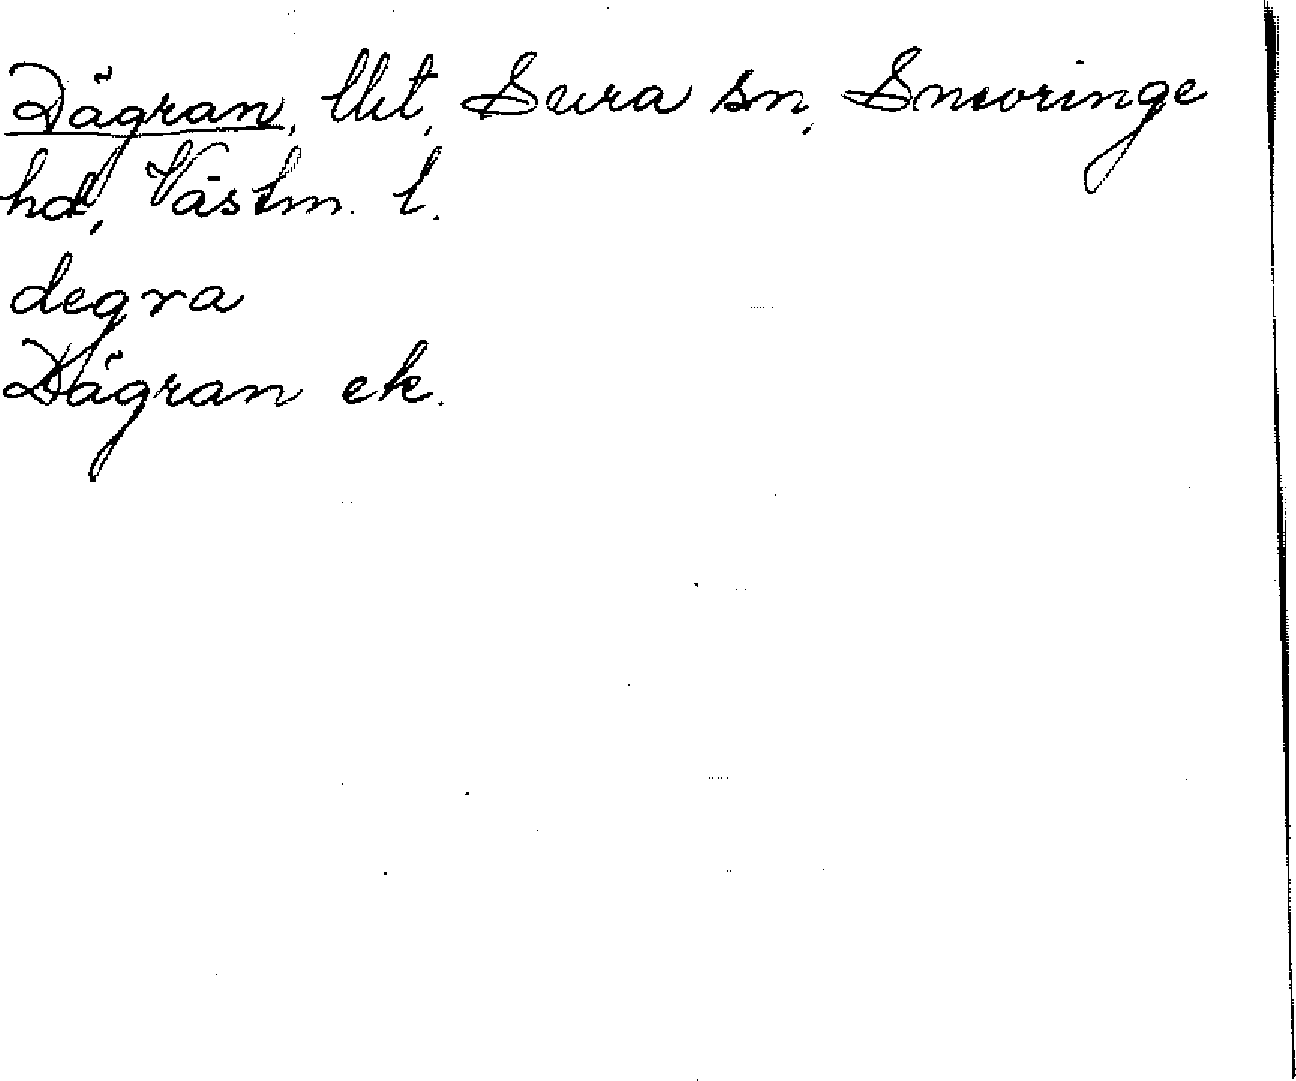 Dägran, Sura sn, Snevringe
hd, Västm. l.
degra
Dägran ek.